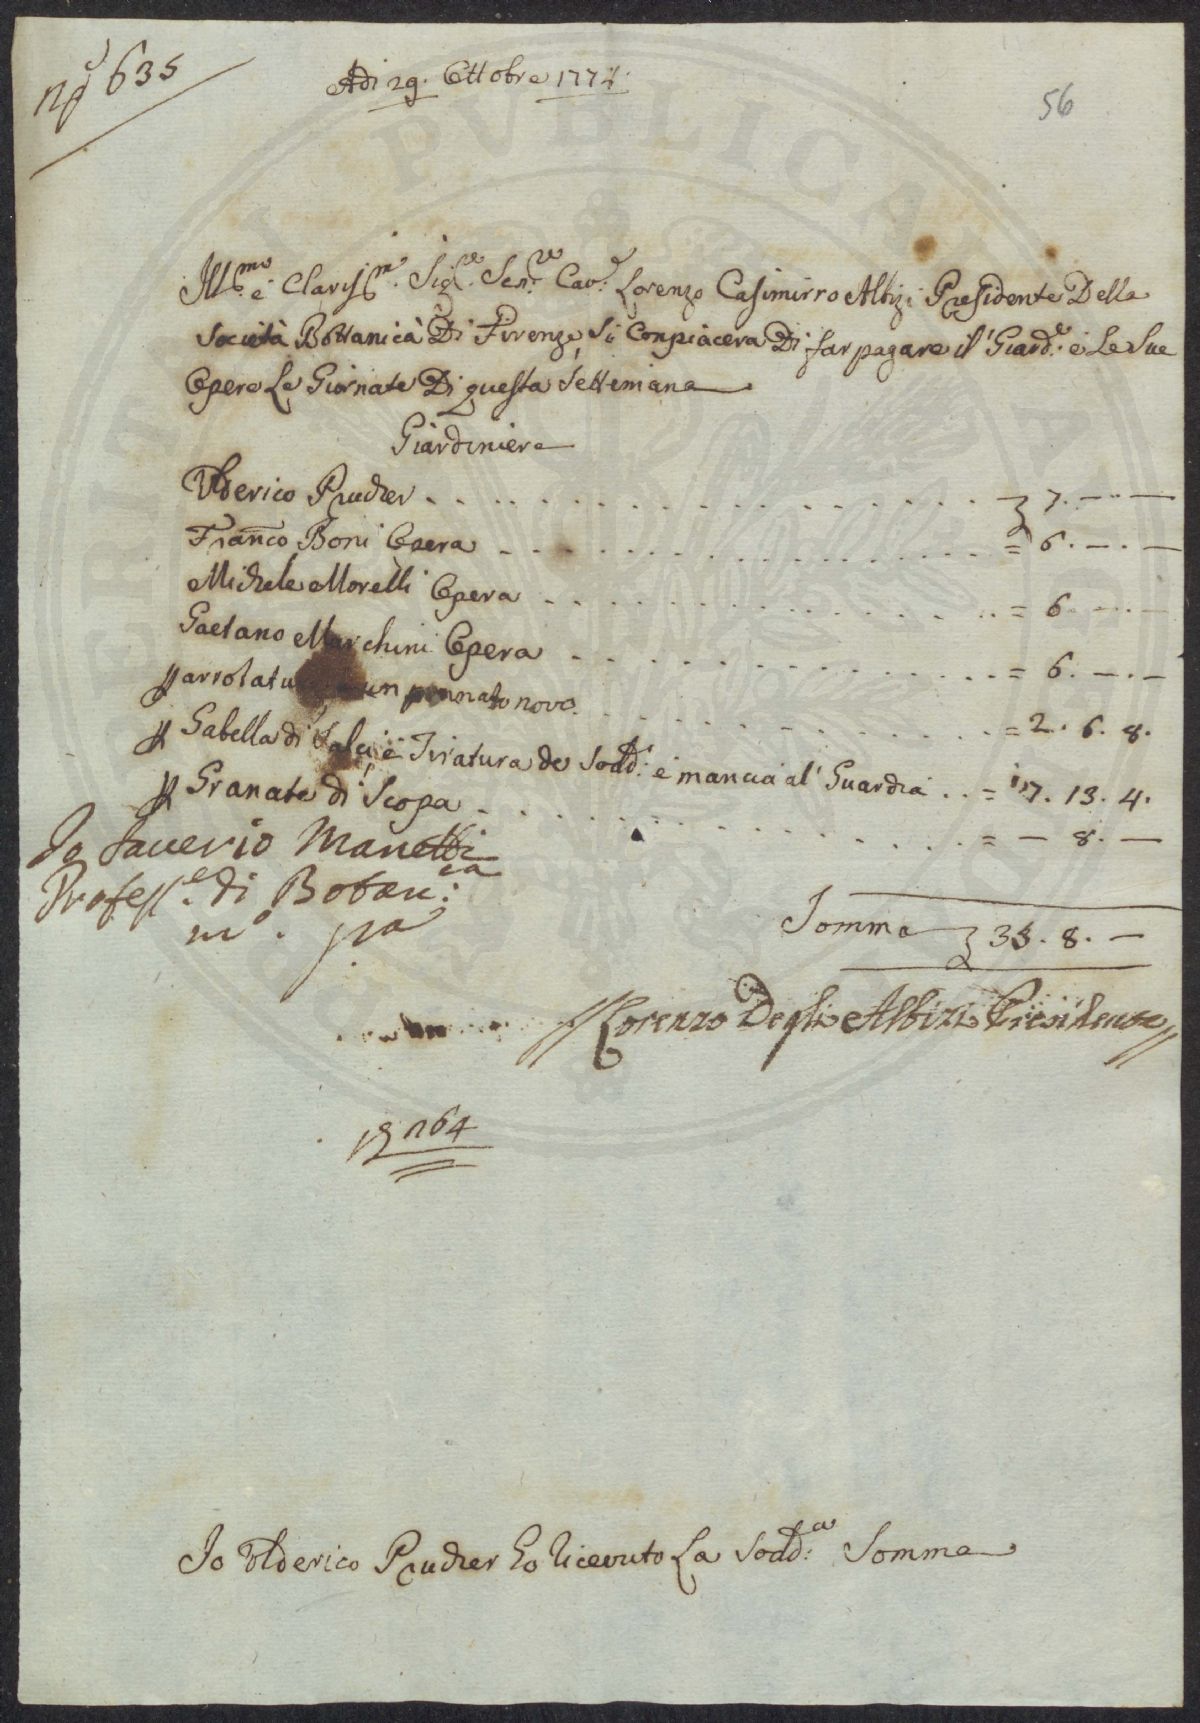 N.º 635
Adi 29. Ottobre 1774.
56
Ill.mo e Clariss.mo Sig.re Sen.re Cav.re Lorenzo Casimirro Albizi Presidente Della
Società Bottanicà Di Firenze, Si Conpiacera Di far pagare il Giard.e e Le Sue
Opere Le Giornate Di questa Settemana
Giardiniere
Ulderico Prucher 7. — —
Franco Boni Opera = 6. — . —
Michele Morelli Opera = 6. — . —
Gaetano Marchini Opera = 6. — . —
p arrolatu un pennato novo = 2. 6. 8.
p Gabella di Salci e Tiratura de Sodd.i e mancia al Guardia = 7. 13. 4.
p Granate di Scopa = — 8. —
Io Saverio Manetti
Profess.e di Botan.ca
m.o p.a
Somma 35. 8. —
// Lorenzo Degli Albizi Presidente //
n 64
Io Ulderico Prucher ho Ricevuto La Sodd.a Somma